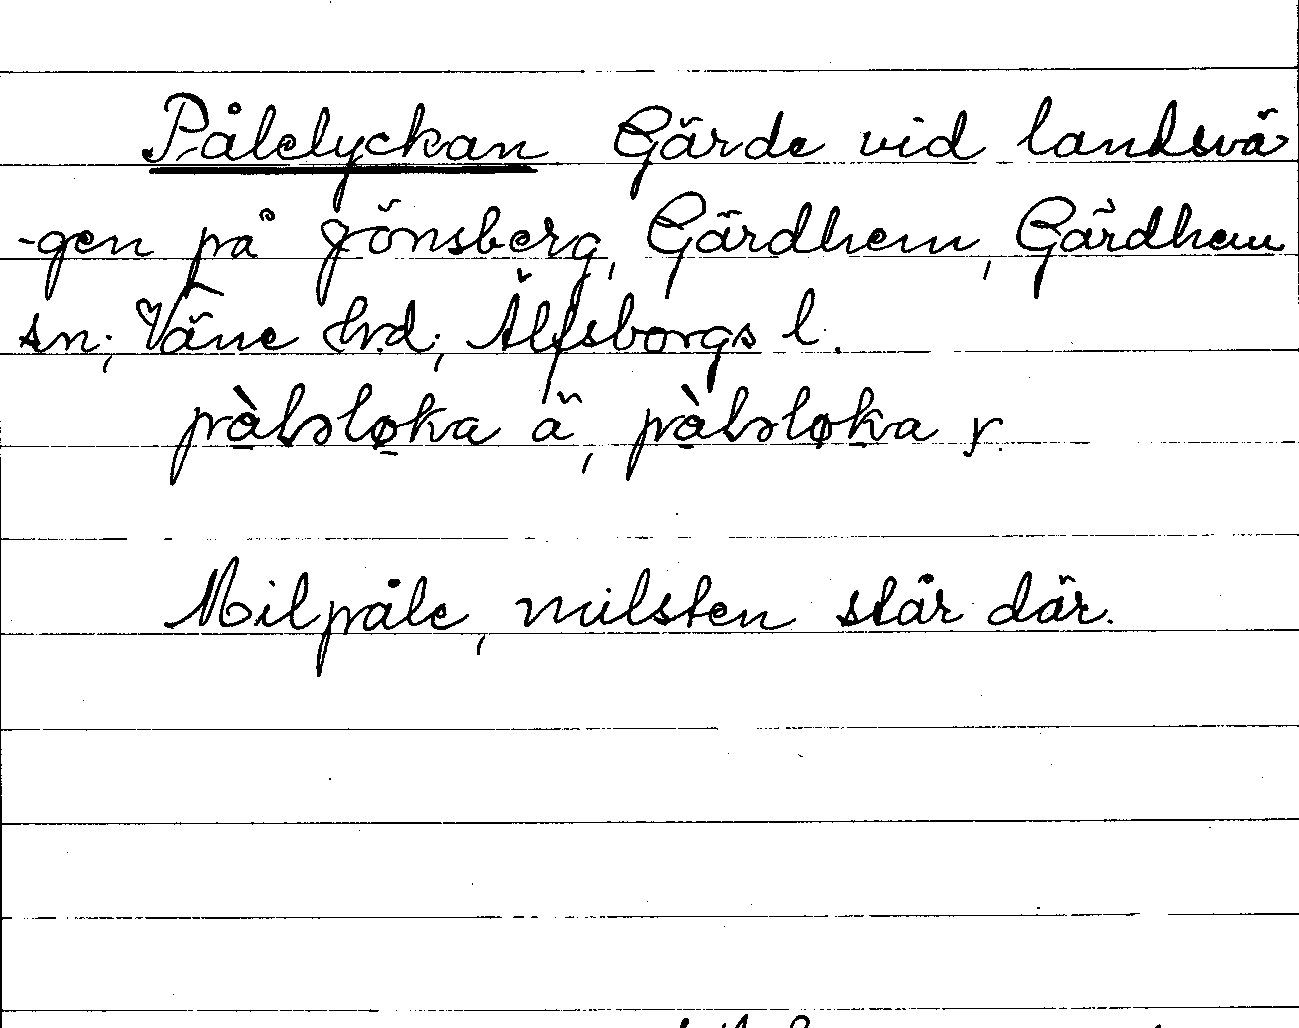 Pålelyckan Gärde vid landsvä
-gen på Jönsberg, Gärdhem, Gärdhem
sn; Väne hrd; Älfsborgs l.
Milpåle, milsten står där.